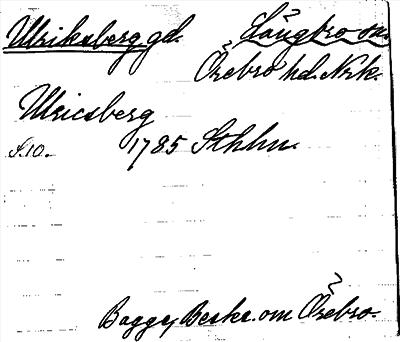 Ulriksberg gd. Långbro sn.
Örebro hd. Nrk.
Ulricsberg
S.10. 1785 Sthlm.
Bagge, Beskr. om Örebro.